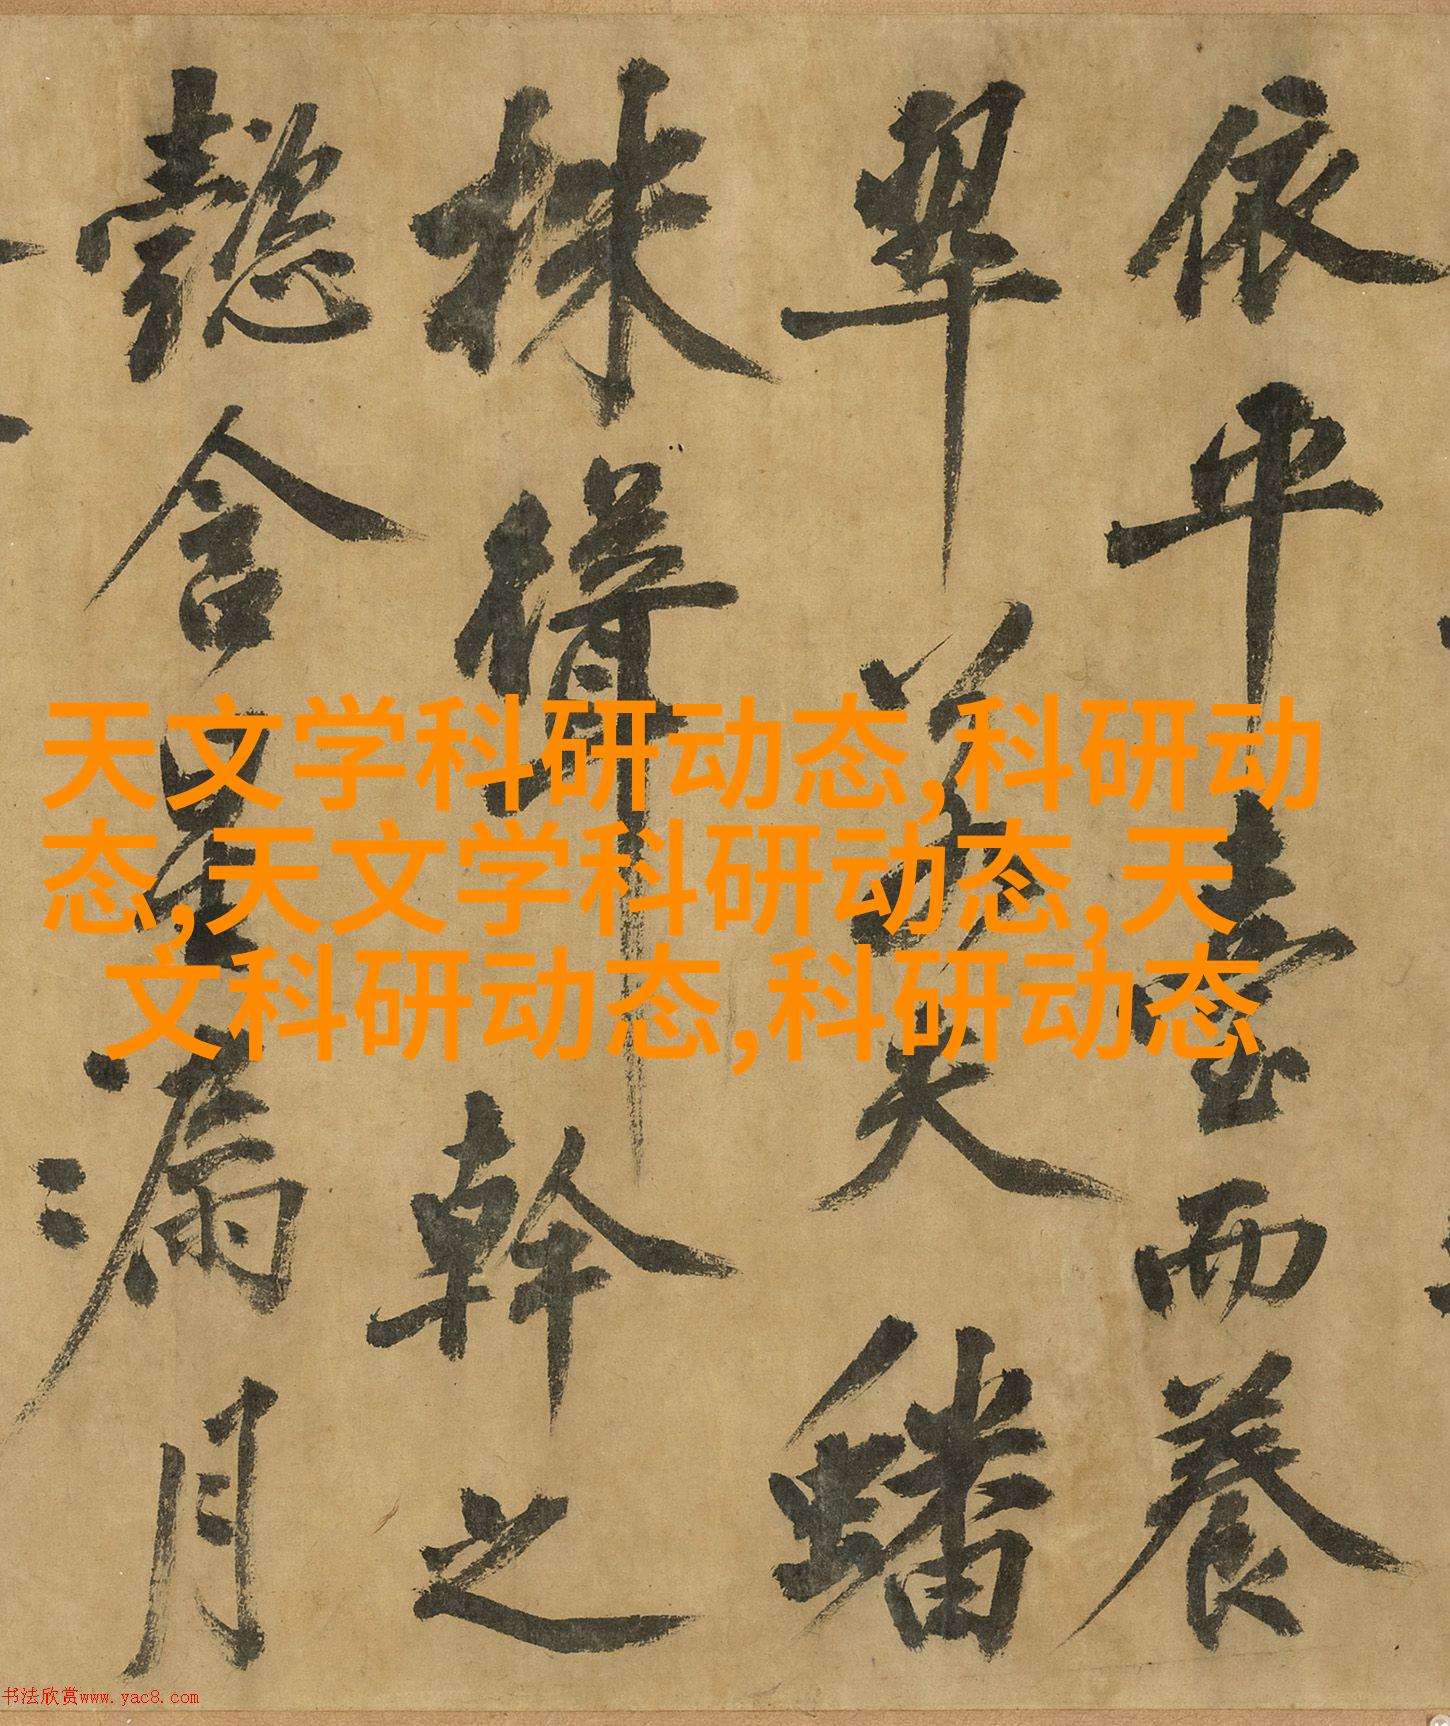 依平臺而養
翠夫蟠
株幹之
懿含星漏月
天文学科研动态,科研动
态,天文学科研动态,天
文科研动态,科研动态
书法欣赏www.yac8.com